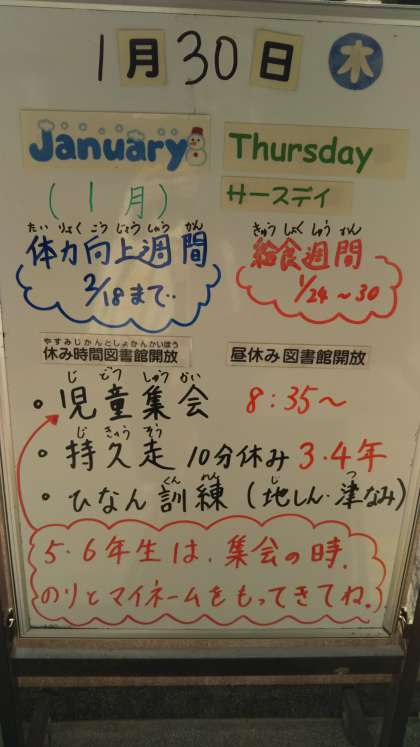 1月30日 木
January Thursday
(1月) サースデイ
たいりょくこうじょうしゅうかん きゅうしょくしゅうかん
体力向上週間 給食週間
2/18まで.. 1/24~30
やすみじかんとしょかんかいほう
休み時間図書館開放 昼休み図書館開放
じどうしゅうかい
・児童集会 8:35~
じきゅうそう
・持久走 10分休み 3・4年
くんれん じ つ
・ひなん訓練(地しん・津なみ)
5・6年生は、集会の時、
のりとマイネームをもってきてね。